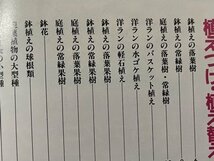 植えつけ・植え替え
鉢植えの落葉樹
鉢植えの常緑樹
庭植えの落葉樹・常緑樹
洋ランのバスケット植え
洋ランの水ゴケ植え
洋ランの軽石植え
庭植えの落葉果樹
庭植えの常緑果樹
鉢植えの落葉果樹
鉢植えの常緑果樹
鉢花
鉢植えの球根類
植物の大型種
の小型種